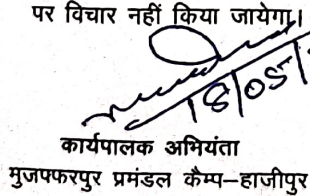 पर विचार नहीं किया जायेगा।
18/05/
कार्यपालक अभियंता
मुजफ्फरपुर प्रमंडल कैम्प–हाजीपुर